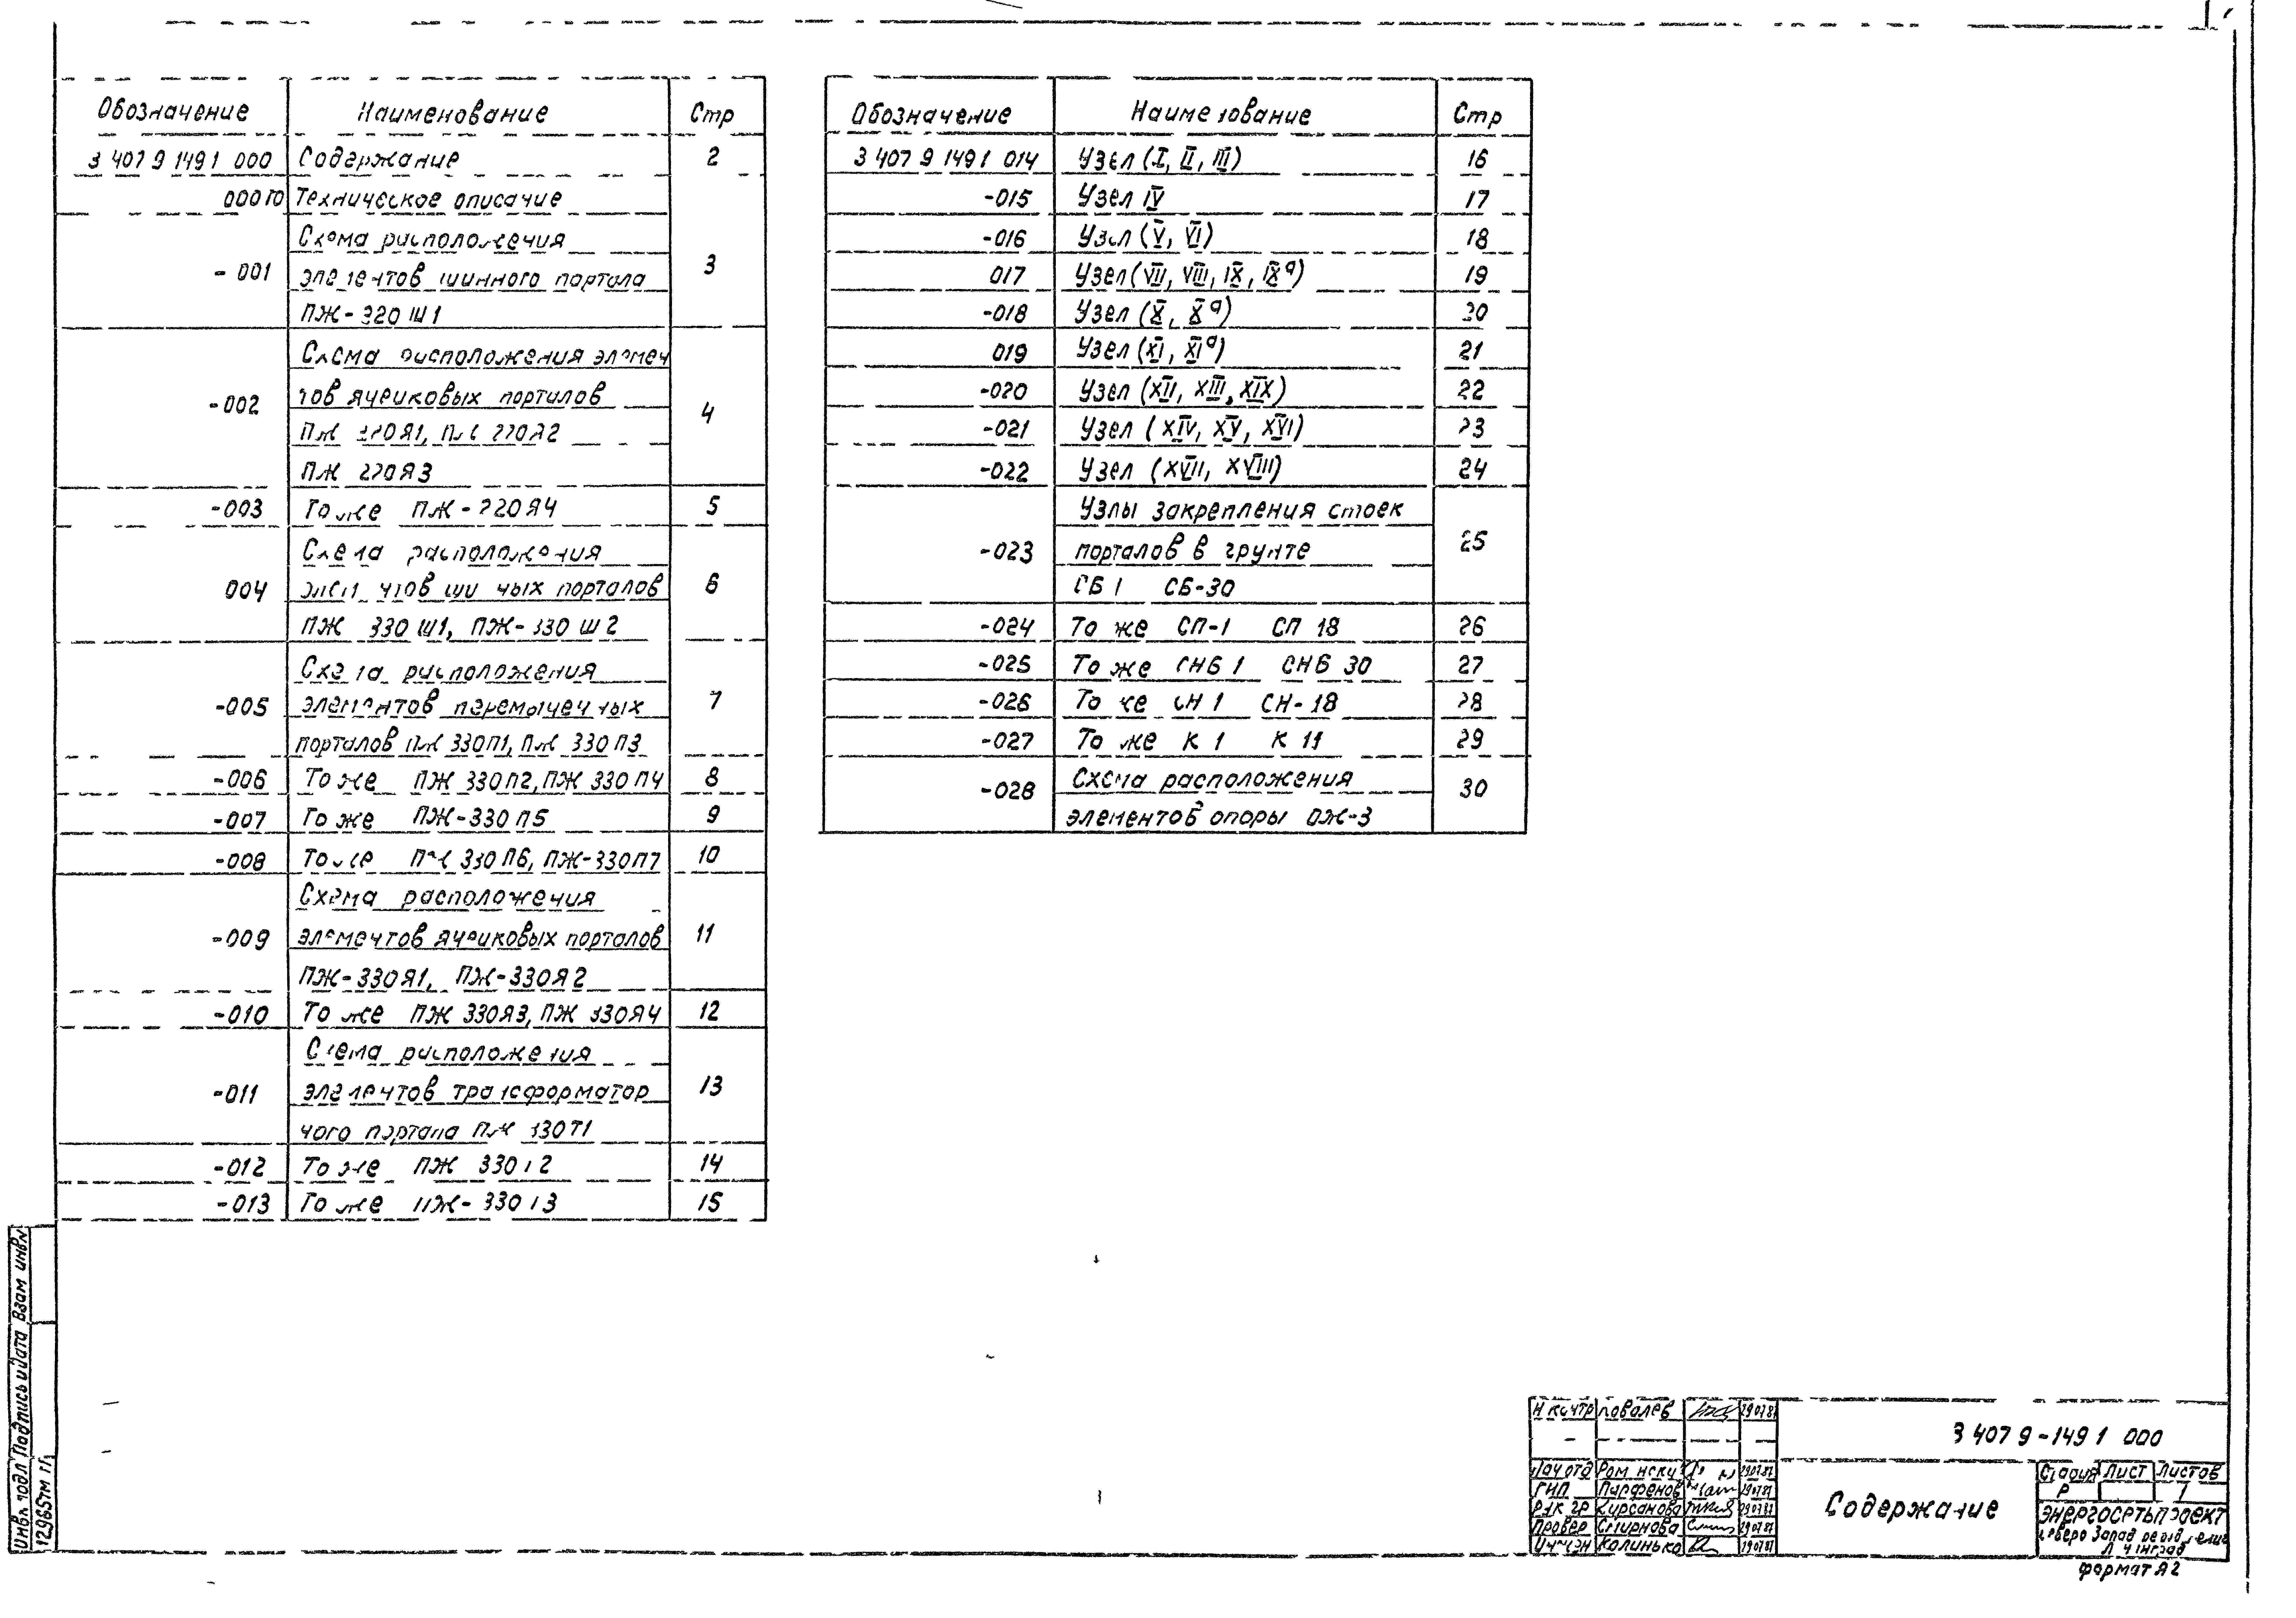 Обозначение Наименование Стр
3 407 9 149 1 000 Содержание 2
000ТО Техническое описание
Схема расположения
- 001 элементов шинного портала 3
ПЖ-320 Ш1
Схема расположения элемен
-002 тов ячейковых порталов 4
ПЖ 220Я1, ПЖ 220Я2
ПЖ 220Я3
-003 То же ПЖ-220Я4 5
Схема расположения
004 элементов шинных порталов 6
ПЖ 330 Ш1, ПЖ-330 Ш2
Схема расположения
-005 элементов перемычечных 7
порталов ПЖ 330П1, ПЖ 330П3
-006 То же ПЖ 330П2, ПЖ 330П4 8
-007 То же ПЖ-330П5 9
-008 То же ПЖ 330П6, ПЖ-330П7 10
Схема расположения
-009 элементов ячейковых порталов 11
ПЖ-330Я1, ПЖ-330Я2
-010 То же ПЖ 330Я3, ПЖ 330Я4 12
Схема расположения
-011 элементов трансформатор 13
ного портала ПЖ 330Т1
-012 То же ПЖ 330Т2 14
-013 То же ПЖ-330Т3 15
Обозначение Наименование Стр
3 407 9 149 1 014 Узел (I, II, III) 16
-015 Узел IV 17
-016 Узел (V, VI) 18
017 Узел (VII, VIII, IX, IXа) 19
-018 Узел (X, Xа) 20
019 Узел (XI, XIа) 21
-020 Узел (XII, XIII, XIX) 22
-021 Узел (XIV, XV, XVI) 23
-022 Узел (XVII, XVIII) 24
Узлы закрепления стоек
-023 порталов в грунте 25
СБ 1 СБ-30
-024 То же СП-1 СП 18 26
-025 То же СНБ 1 СНБ 30 27
-026 То же СН 1 СН-18 28
-027 То же К 1 К 11 29
-028 Схема расположения 30
элементов опоры ОЖ-3
Инв № подл Подпись и дата Взам инв №
12965тм
Н контр Ковалев 290787
3 407 9-149 1 000
Нач отд Роменский 290787
ГИП Парфенов 290787
Рук гр Кирсанова 290787
Провер Смирнова 290787
Инжен Калинько 290787
Содержание
Стадия Лист Листов
Р 1
ЭНЕРГОСЕТЬПРОЕКТ
Северо Западное отделение
Ленинград
Формат А2